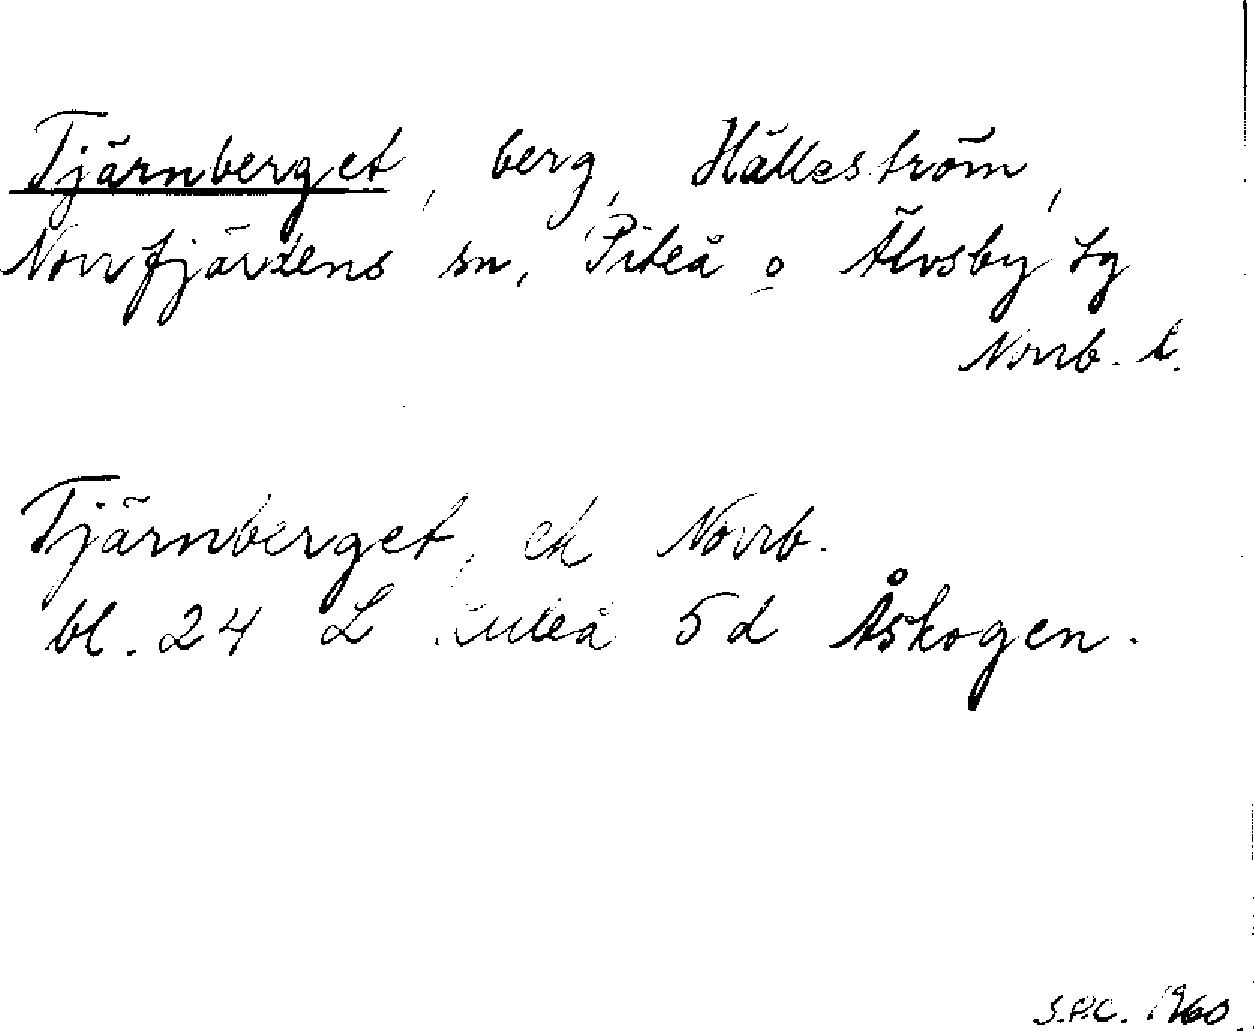 Tjärnberget, berg, Hälleström,
Norrfjärdens sn, Piteå o Älvsby tg
Norrb. l.
Tjärnberget, ek Norrb.
bl. 24 L Luleå 5d Åskogen.
S.P.C. 1960